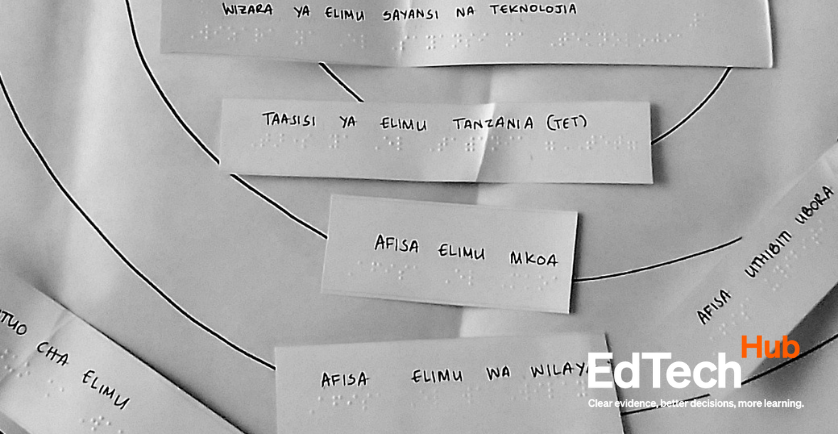 WIZARA YA ELIMU SAYANSI NA TEKNOLOJIA
TAASISI YA ELIMU TANZANIA (TET)
AFISA ELIMU MKOA
AFISA UTHIBITI UBORA
CHA ELIMU
AFISA ELIMU WA
EdTech Hub
Clear evidence, better decisions, more learning.